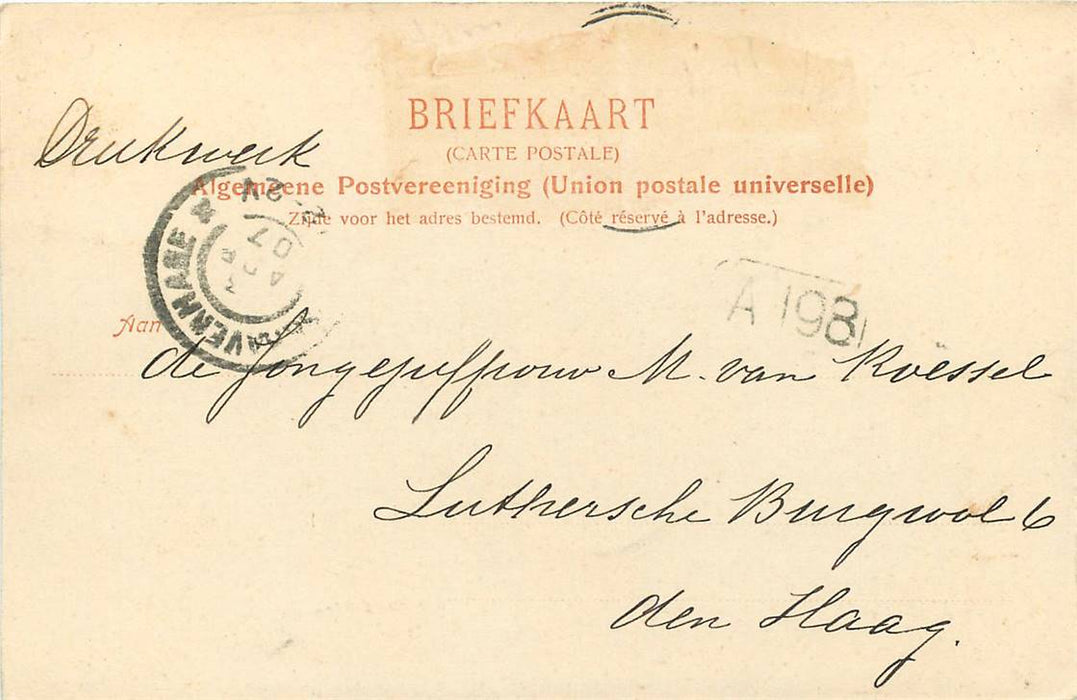 BRIEFKAART
Drukwerk
(CARTE POSTALE)
Algemeene Postvereeniging (Union postale universelle)
Zijde voor het adres bestemd. (Côté réservé à l'adresse.)
A 198
Aan
de Jongejuffrouw M. van Roessel
Luthersche Burgwal 6
den Haag.